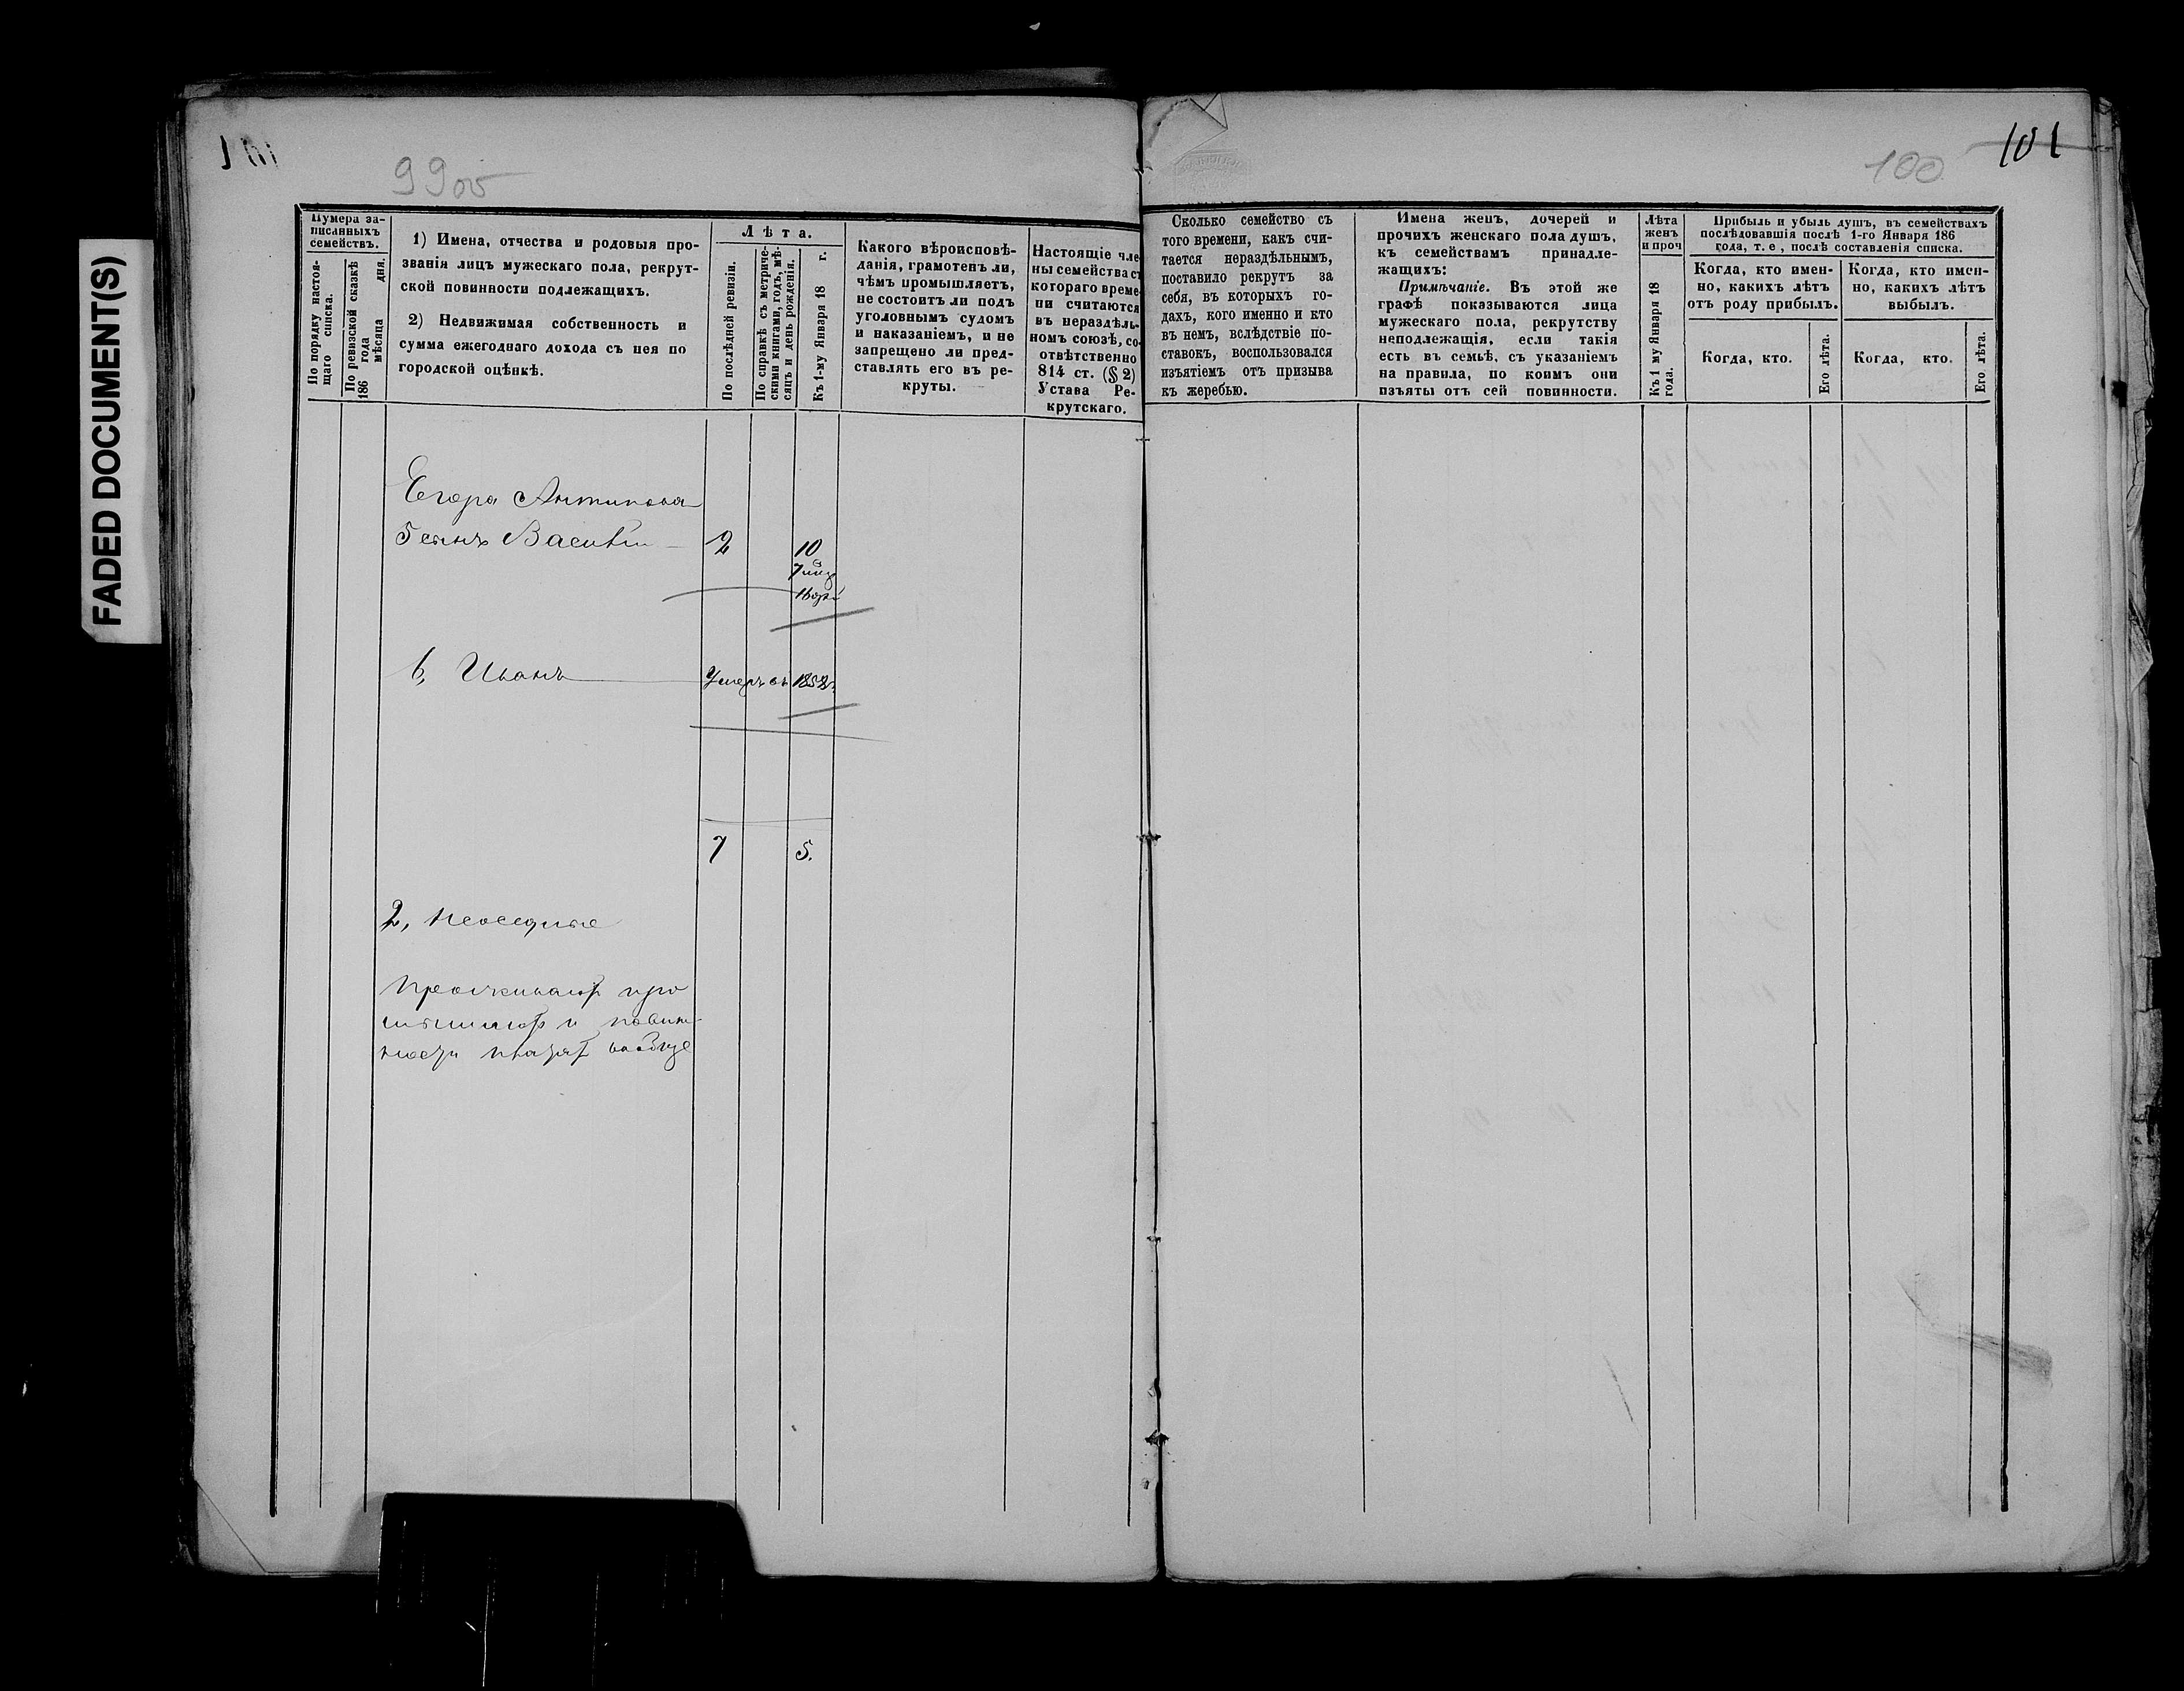 FADED DOCUMENT(S)
99об
Нумера за-
писанныхъ
семействъ.
По порядку настоя-
щаго списка.
По ревизской сказкѣ
186 года
мѣсяца дня.
1) Имена, отчества и родовыя про-
званія лицъ мужескаго пола, рекрут-
ской повинности подлежащихъ.
2) Недвижимая собственность и
сумма ежегоднаго дохода съ нея по
городской оцѣнкѣ.
Лѣта.
По послѣдней ревизіи.
По справкѣ съ метриче-
скими книгами, годъ, мѣ-
сяцъ и день рожденія.
Къ 1-му Января 18 г.
Какого вѣроисповѣ-
данія, грамотенъ ли,
чѣмъ промышляетъ,
не состоитъ ли подъ
уголовнымъ судомъ
и наказаніемъ, и не
запрещено ли пред-
ставлять его въ ре-
круты.
Настоящіе чле-
ны семейства съ
котораго време-
ни считаются
въ нераздѣль-
номъ союзѣ, со-
отвѣтственно
814 ст. (§ 2)
Устава Ре-
крутскаго.
Егора Антипова
5 сынъ Василій 2 10
6, Иванъ Умеръ въ 1852
7 5.
2, неоседлые
Проживаютъ про
мышляютъ и повин-
ности платятъ вообще
101
100
Сколько семейство съ
того времени, какъ счи-
тается нераздѣльнымъ,
поставило рекрутъ за
себя, въ которыхъ го-
дахъ, кого именно и кто
въ немъ, вслѣдствіе по-
ставокъ, воспользовался
изъятіемъ отъ призыва
къ жеребью.
Имена женъ, дочерей и
прочихъ женскаго пола душъ,
къ семействамъ принадле-
жащихъ:
Примѣчаніе. Въ этой же
графѣ показываются лица
мужескаго пола, рекрутству
неподлежащія, если такія
есть въ семьѣ, съ указаніемъ
на правила, по коимъ они
изъяты отъ сей повинности.
Лѣта
женъ
и проч
Къ 1 му Января 18
года.
Прибыль и убыль душъ, въ семействахъ
послѣдовавшія послѣ 1-го Января 186
года, т. е, послѣ составленія списка.
Когда, кто имен-
но, какихъ лѣтъ
отъ роду прибылъ.
Когда, кто.
Его лѣта.
Когда, кто имен-
но, какихъ лѣтъ
выбылъ.
Когда, кто.
Его лѣта.